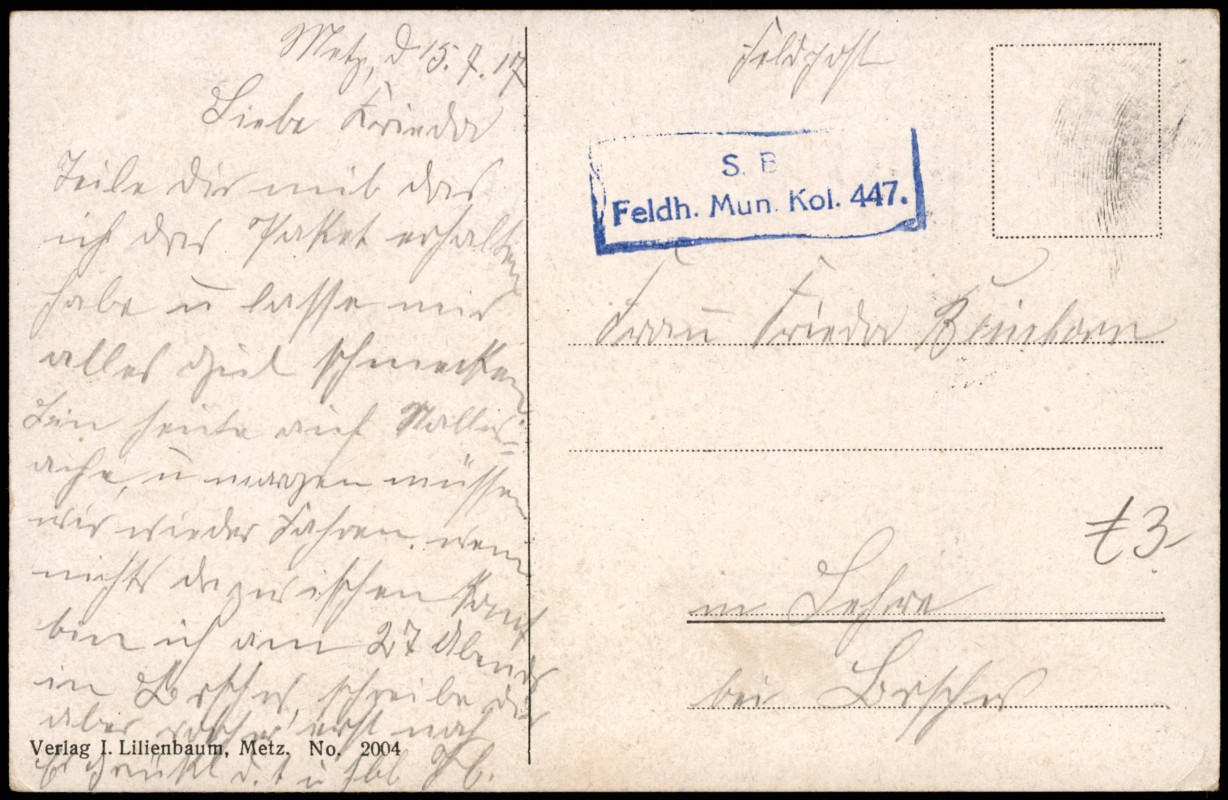 Metz, d 15. 7. 17
Liebe Frieda
Teile dir mit das
ich das Paket erhalten
habe u lasse mir
alles schmecken
bin heute auf
u morgen müssen
wir wieder fahren. wen
nichts dazwischen komt
bin ich am 27 Abends
in schreibe dir
aber vorher erst noch
Verlag I. Lilienbaum, Metz. No. 2004
Feldpost
S. B
Feldh. Mun. Kol. 447.
Frau Frieda
in Lehre
bei
t3